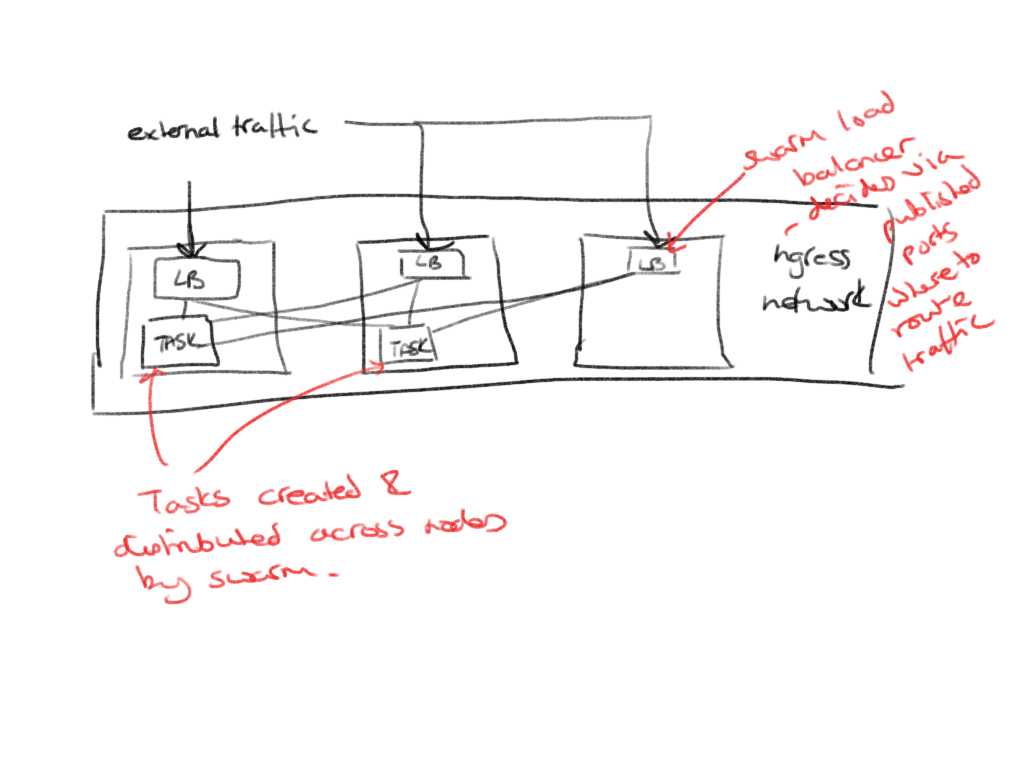 external traffic
swarm load
balancer
decides via
published
ports
where to
route
traffic
ngress
network
LB
LB
LB
TASK
TASK
Tasks created &
distributed across nodes
by swarm.